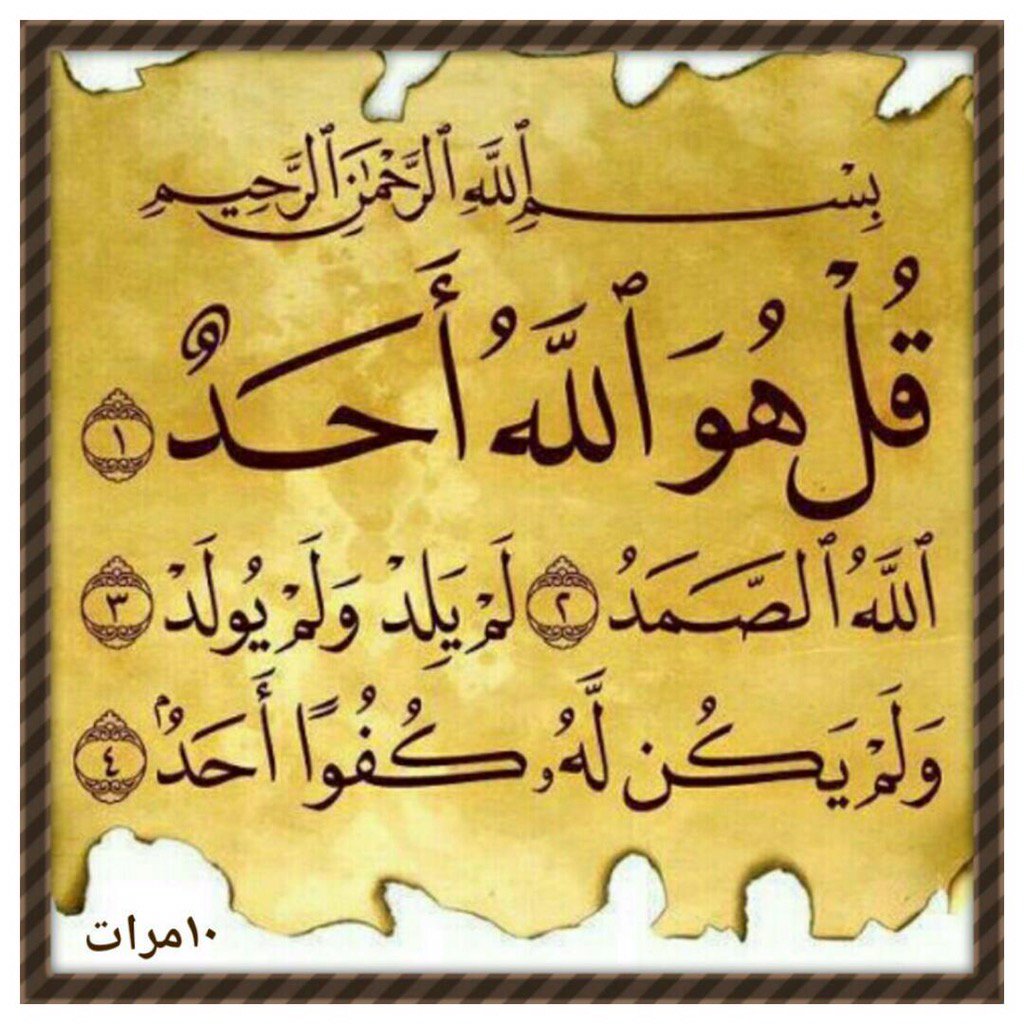 بِسْمِ ٱللَّهِ ٱلرَّحْمَٰنِ ٱلرَّحِيمِ
قُلْ هُوَ ٱللَّهُ أَحَدٌ ١
ٱللَّهُ ٱلصَّمَدُ ٢ لَمْ يَلِدْ وَلَمْ يُولَدْ ٣
وَلَمْ يَكُن لَّهُۥ كُفُوًا أَحَدُۢ ٤
١٠مرات